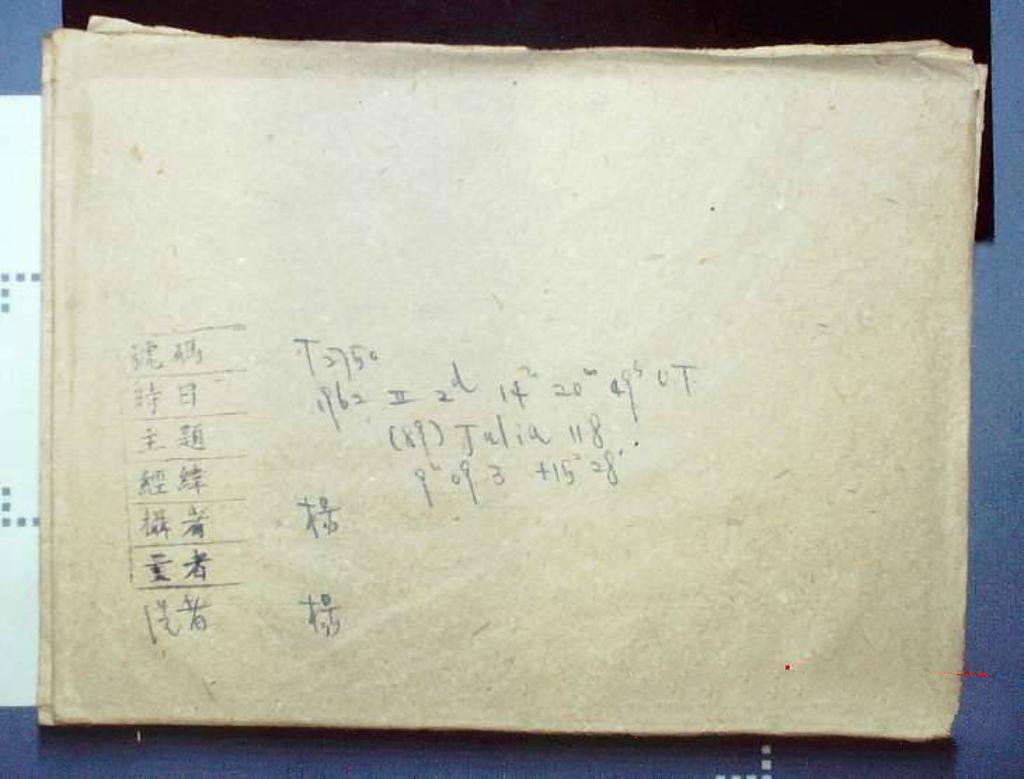 號碼 T2750
時日 1962 II 2d 14h 20m 49s UT
主題 (89) Julia 118
經緯 9h 09.3 +15° 28'
攝者 楊
量者
洗者 楊